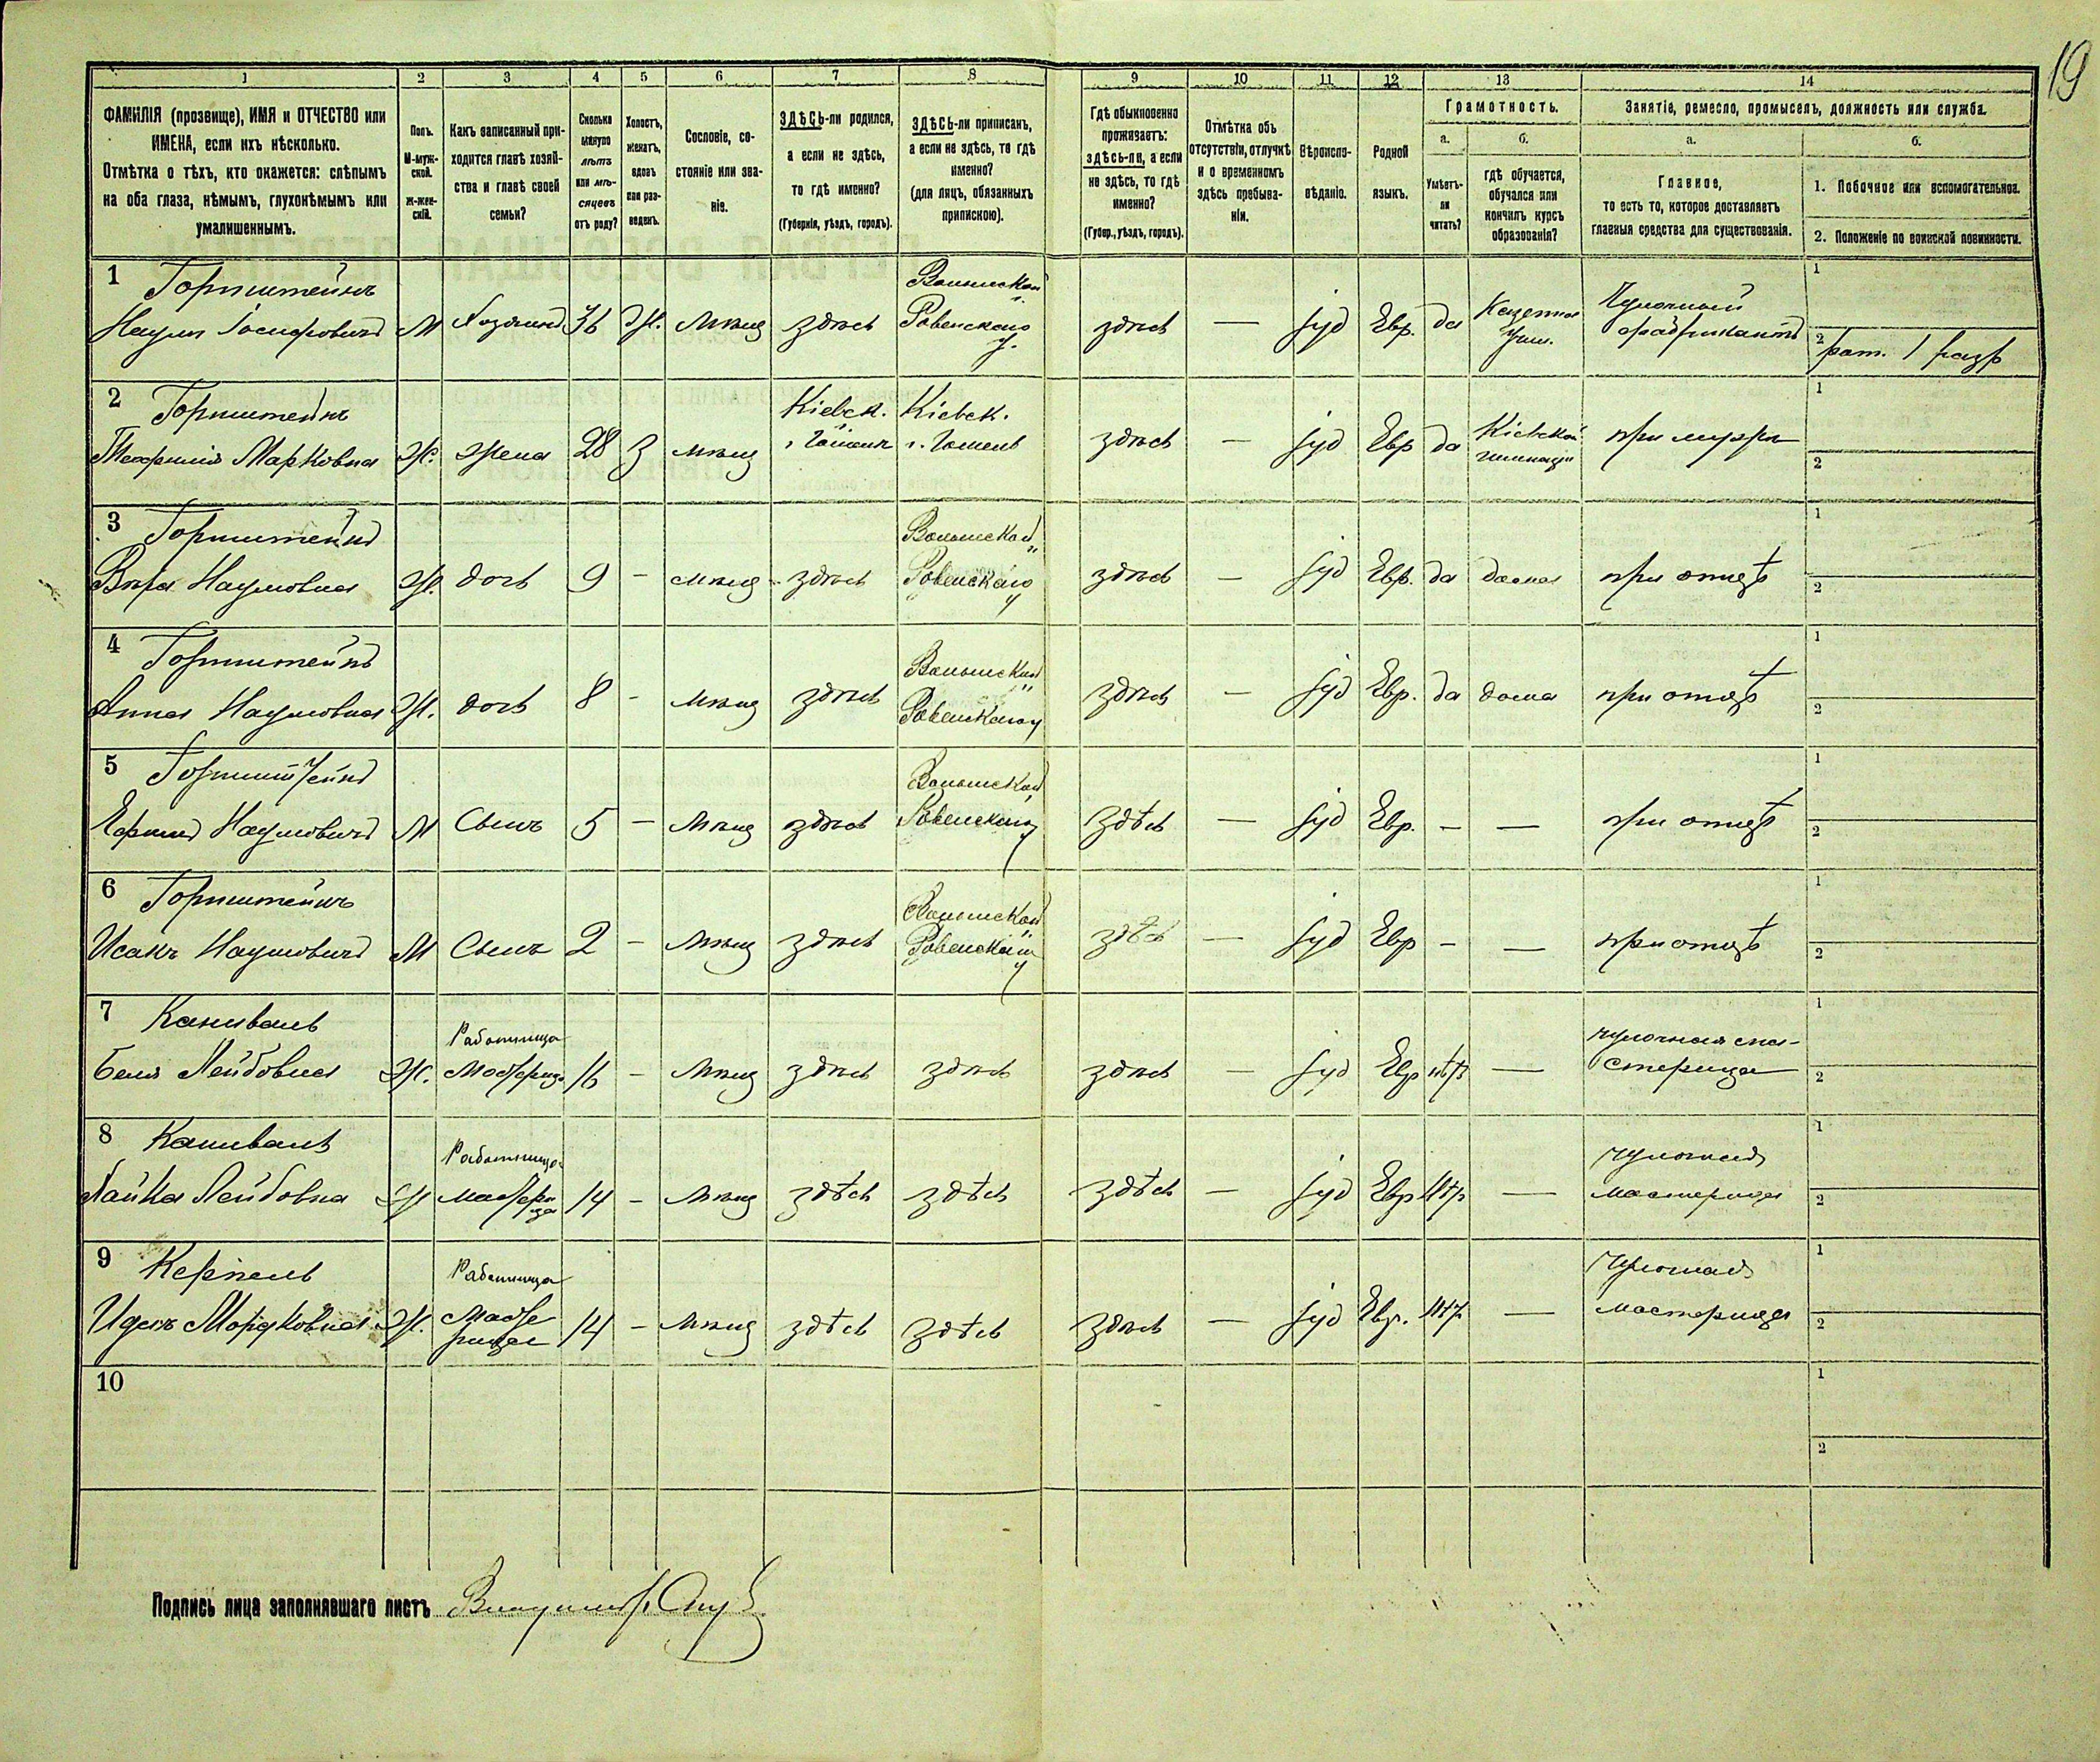 19
1 2 3 4 5 6 7 8 9 10 11 12 13 14
ФАМИЛІЯ (прозвище), ИМЯ и ОТЧЕСТВО или
ИМЕНА, если ихъ нѣсколько.
Отмѣтка о тѣхъ, кто окажется: слѣпымъ
на оба глаза, нѣмымъ, глухонѣмымъ или
умалишеннымъ.
Полъ.
М-муж-
ской.
ж-жен-
скій.
Какъ записанный при-
ходится главѣ хозяй-
ства и главѣ своей
семьи?
Сколько
минуло
лѣтъ
или мѣ-
сяцевъ
отъ роду?
Холостъ,
женатъ,
вдовъ
или раз-
веденъ.
Сословіе, со-
стояніе или зва-
ніе.
ЗДѢСЬ-ли родился,
а если не здѣсь,
то гдѣ именно?
(Губернія, уѣздъ, городъ).
ЗДѢСЬ-ли приписанъ,
а если не здѣсь, то гдѣ
именно?
(для лицъ, обязанныхъ
припискою).
Гдѣ обыкновенно
проживаетъ:
здѣсь-ли, а если
не здѣсь, то гдѣ
именно?
(Губер., уѣздъ, городъ).
Отмѣтка объ
отсутствіи, отлучкѣ
и о временномъ
здѣсь пребыва-
ніи.
Вѣроиспо-
вѣданіе.
Родной
языкъ.
Грамотность.
а.
Умѣетъ-
ли
читать?
б.
гдѣ обучается,
обучался или
кончилъ курсъ
образованія?
Занятіе, ремесло, промыселъ, должность или служба.
а.
Главное,
то есть то, которое доставляетъ
главныя средства для существованія.
б.
1. Побочное или вспомогательное.
2. Положеніе по воинской повинности.
1 Горнштейнъ
Наумъ Іосифовичъ М Хозяинъ 36 Ж. мѣщ здѣсь Волынской г. Ровенскаго у. здѣсь — іуд Евр. да Казенное Учил. Чулочный фабрикантъ
1
2 рат. 1 разр
2 Горнштейнъ
Марковна Ж. жена 28 З мѣщ Кіевск. Кіевск. здѣсь — іуд Евр да Кіевской гимназіи при мужѣ
1
2
3 Горнштейнъ
Вѣра Наумовна Ж. дочь 9 - мѣщ здѣсь Волынской Ровенскаго у здѣсь — іуд Евр. да дома при отцѣ
1
2
4 Горнштейнъ
Анна Наумовна Ж. дочь 8 - мѣщ здѣсь Волынской Ровенскаго у здѣсь — іуд Евр. да дома при отцѣ
1
2
5 Горнштейнъ
Наумовичъ М Сынъ 5 - мѣщ здѣсь Волынской Ровенскаго у здѣсь — іуд Евр. - — при отцѣ
1
2
6 Горнштейнъ
Исакъ Наумовичъ М Сынъ 2 - мѣщ здѣсь Волынской Ровенскаго у здѣсь — іуд Евр - — при отцѣ
1
2
7
Лейбовна Ж. Работница мастерица 16 - мѣщ здѣсь здѣсь здѣсь — іуд Евр нѣтъ — чулочная ма-
стерица
1
2
8
Лейбовна Ж Работница мастерица 14 - мѣщ здѣсь здѣсь здѣсь — іуд Евр нѣтъ — чулочная
мастерица
1
2
9 Керпель
Мордковна Ж. Работница мастерица 14 - мѣщ здѣсь здѣсь здѣсь — іуд Евр. нѣтъ — чулочная
мастерица
1
2
10
1
2
Подпись лица заполнявшаго листъ